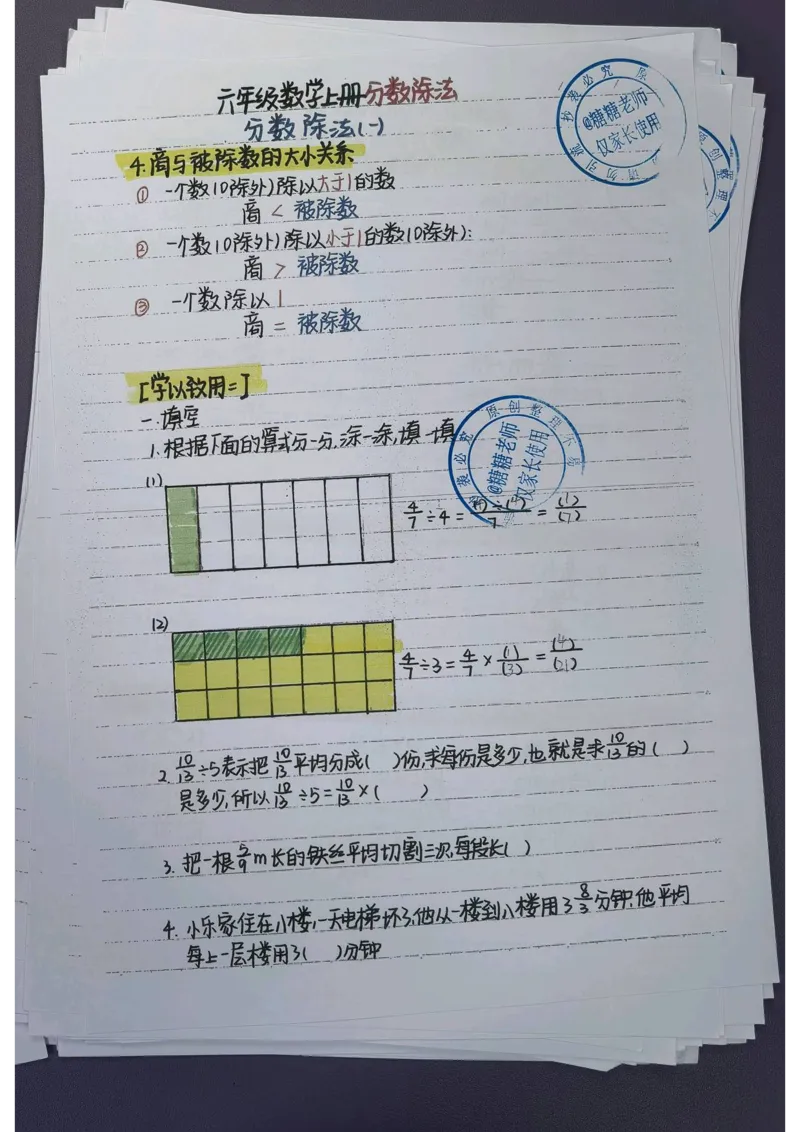 六年级数学上册分数除法
分数除法(一)
4.商与被除数的大小关系
① 一个数(0除外)除以大于1的数
商 < 被除数
② 一个数(0除外)除以小于1的数(0除外):
商 > 被除数
③ 一个数除以1
商 = 被除数
[学以致用=]
一.填空
1.根据下面的算式分一分,涂一涂,填一填
(1)
4/7÷4=(4)÷(4)/7=(1)/(7)
(2)
4/7÷3=4/7×(1)/(3)=(4)/(21)
2. 10/13÷5表示把10/13平均分成( )份,求每份是多少,也就是求10/13的( )
是多少,所以10/13÷5=10/13×( )
3. 把一根5/9m长的铁丝平均切割三次,每段长( )
4. 小乐家住在八楼,一天电梯坏了,他从一楼到八楼用了8/3分钟,他平均
每上一层楼用了( )分钟
@糖糖老师
仅家长使用
抄袭必究 原
请勿引流
原创整理
@糖糖老师
仅家长使用
袭必究 原创整理 不易